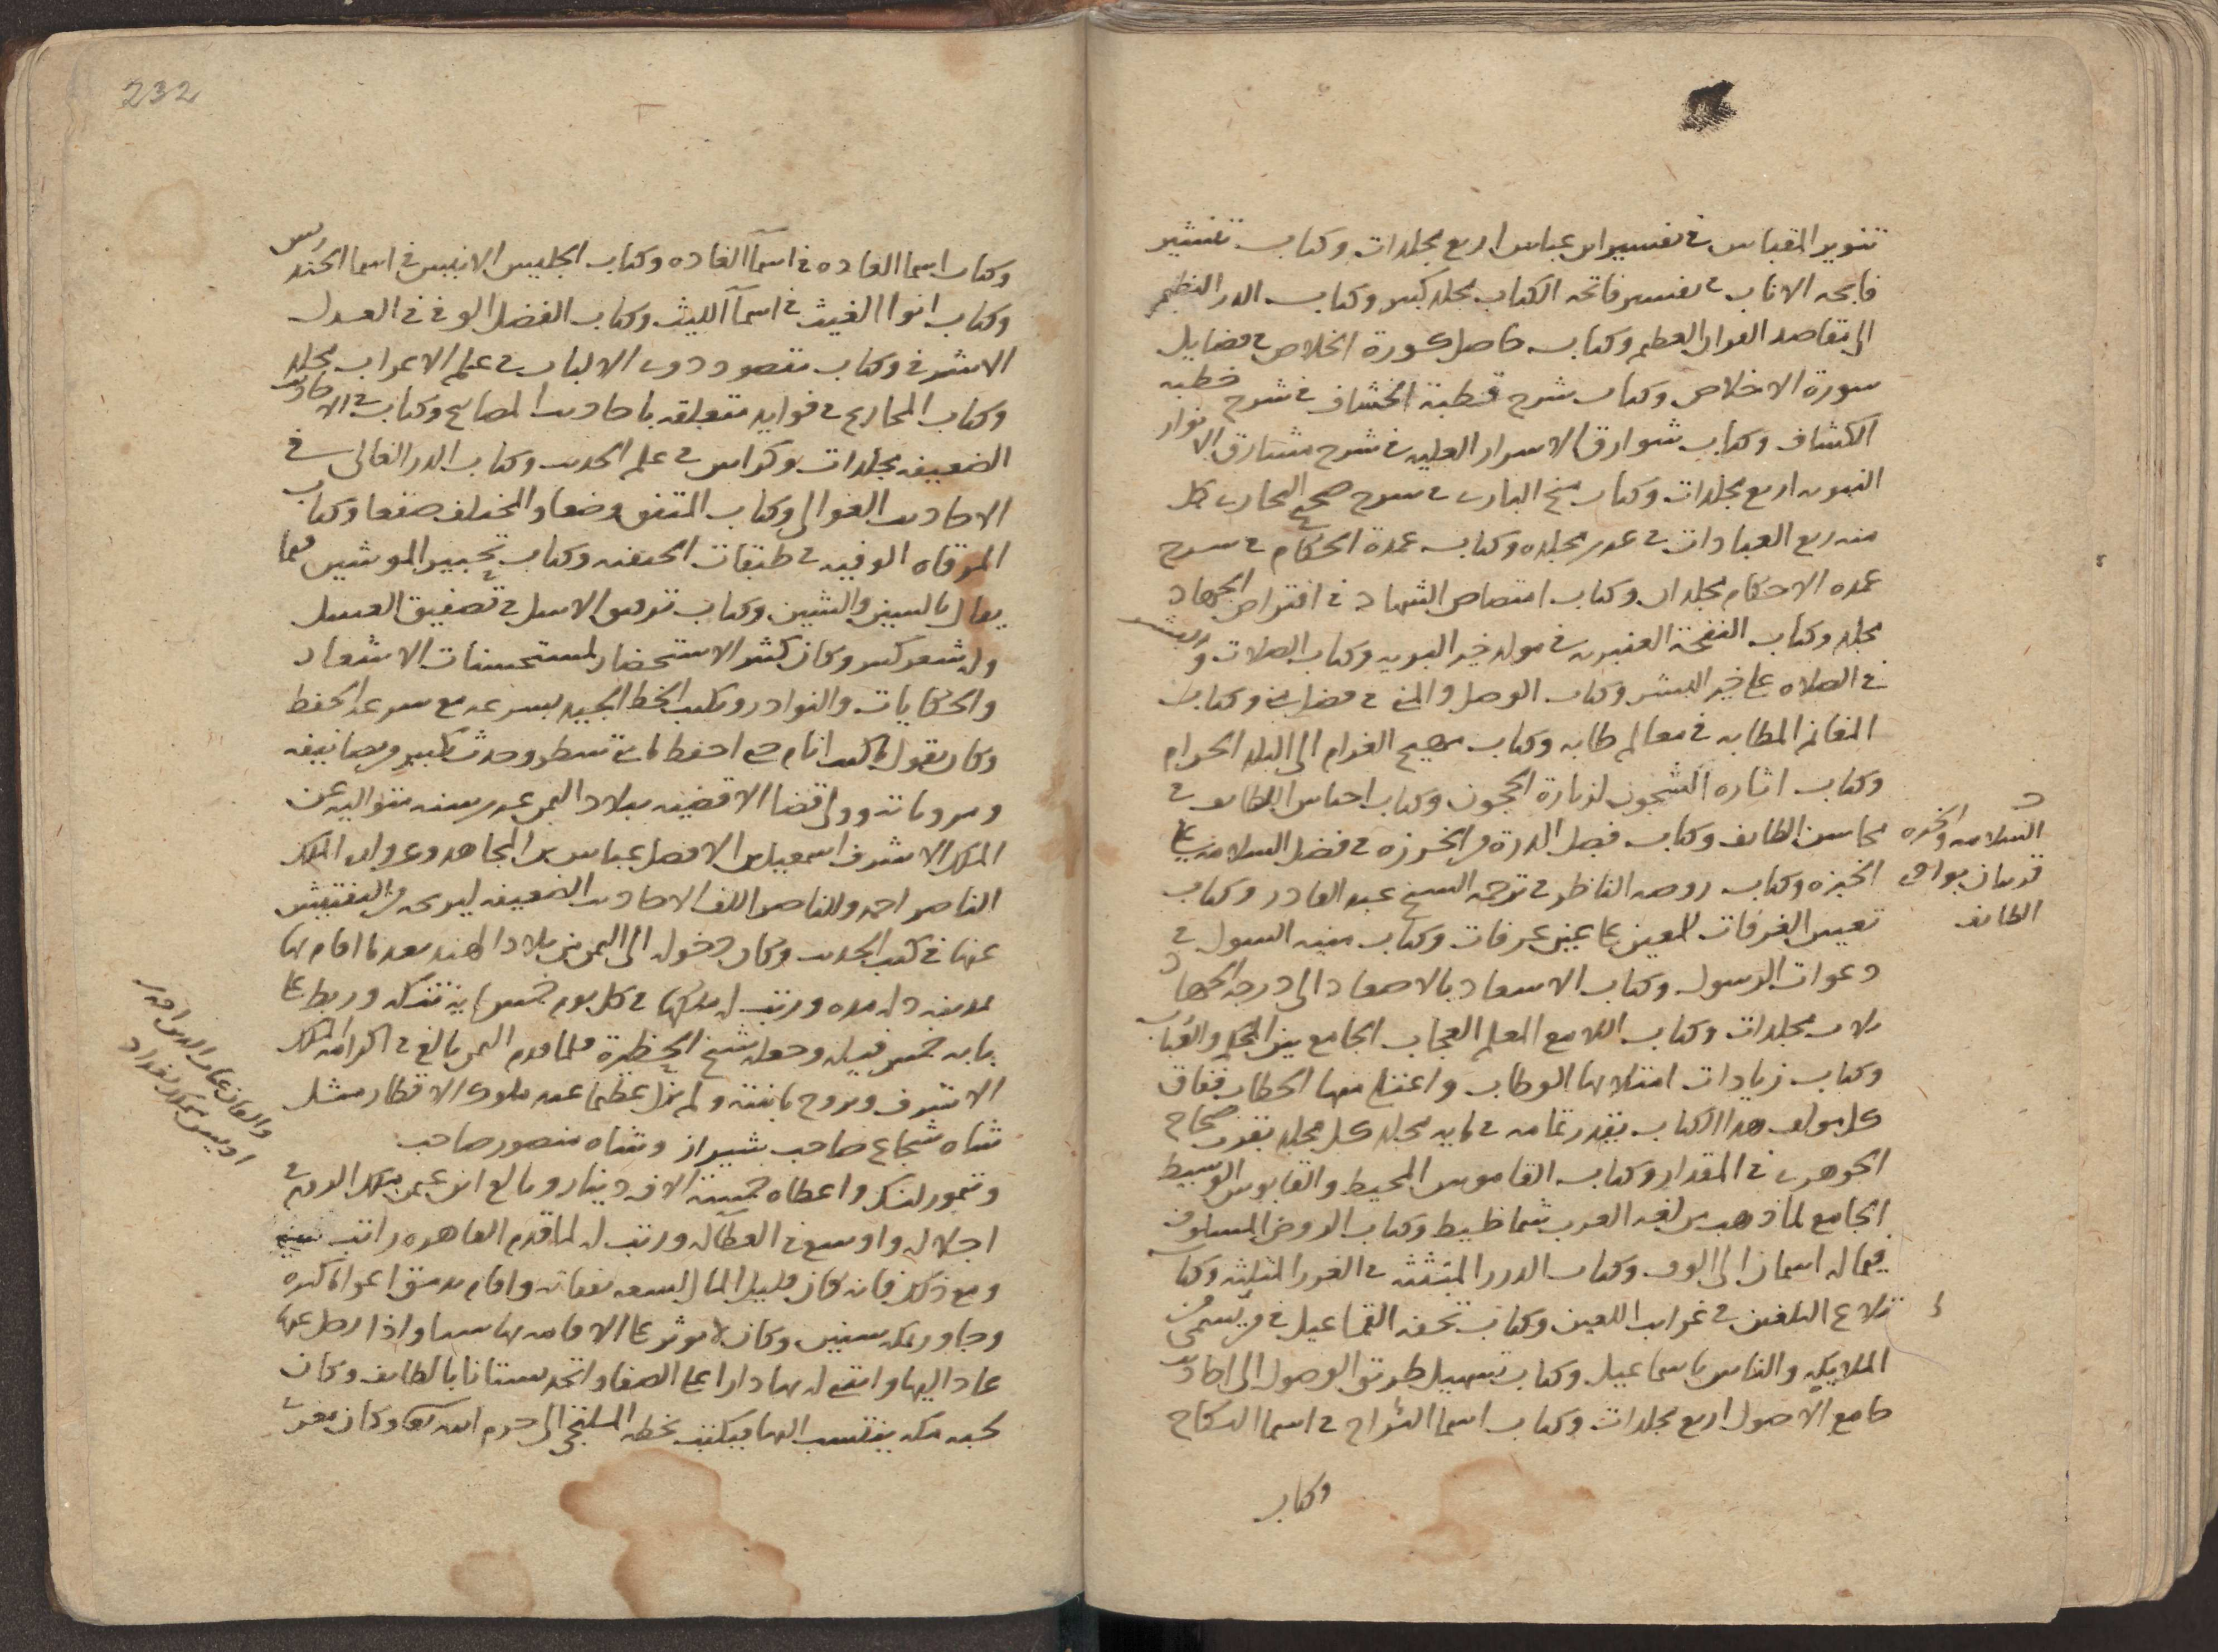 تنوير المقباس في تفسير ابن عباس اربع مجلدات وكتاب تيسير
فايحه الاناب في تفسير فاتحه الكتاب مجلد كبير وكتاب الدر النظيم
الى مقاصد القران العظيم وكتاب حاصل كورة الخلاص في فضايل
سورة الاخلاص وكتاب شرح قطبة الخشاف في شرح خطبه
الكشاف وكتاب شوارق الاسرار العليه في شرح مشارق الانوار
النبويه اربع مجلدات وكتاب منح الباري في شرح صحيح البخاري كمل
منه ربع العبادات في عشرين مجلده وكتاب عمدة الحكام في شرح
عمده الاحكام مجلدان وكتاب امتضاض الشهاد في افتراض الجهاد
مجلد وكتاب النفحة العنبريه في مولد خير البريه وكتاب الصلات والبشر
في الصلاه على خير البشر وكتاب الوصل والمنى في فضل منى وكتاب
المغانم المطابه في معالم طابه وكتاب مهيج الغرام الى البلد الحرام
وكتاب اثاره الشجون لزيارة الحجون وكتاب احاسن اللطايف في
محاسن الطايف وكتاب فصل الدرة من الخرزه في فضل السلامه على
الخبزه وكتاب روضه الناظر في ترجمه الشيخ عبد القادر وكتاب
السلامه والخبزه
قريتان بوادي
الطايف
تعيين الغرفات للمعين على عين عرفات وكتاب منيه السول في
دعوات الرسول وكتاب الاسعاد بالاصعاد الى درجه الجهاد
ثلاث مجلدات وكتاب اللامع المعلم العجاب الجامع بين المحكم والعباب
وكتاب زيادات امتلا بها الوطاب واعتلى منها الخطاب ففاق
كل مولف هذا الكتاب يقدر تمامه في مايه مجلد كل مجلد يقرب صحاح
الجوهري في المقدار وكتاب القاموس المحيط والقابوس الوسيط
الجامع لما ذهب من لغه العرب شماطيط وكتاب الروض المسلوف
فيما له اسمان الى الوف وكتاب الدرر المبثثه في الغرر المثلثه وكتاب
بلاغ التلقين في غرايب اللعين وكتاب تحفه القماعيل في من تسمى من
الملايكه والناس باسماعيل وكتاب تسهيل طريق الوصول الى احاديث
جامع الاصول اربع مجلدات وكتاب اسما السراح في اسما النكاح
وكتاب
232
وكتاب اسما الغاده في اسمآ العاده وكتاب الجليس الانيس في اسما الخندريس
وكتاب انوا الغيث في اسمآ الليث وكتاب الفضل الوفي في العدل
الاشرفي وكتاب مقصود ذوي الالباب في علم الاعراب مجلد
وكتاب المخاريج في فوايد متعلقه باحاديث المصابيح وكتاب في الاحاديث
الضعيفه مجلدات وكراس في علم الحديث وكتاب الدر الغالي في
الاحاديث العوالي وكتاب المتفق وضعا والمختلف صنعا وكتاب
المرقاه الوفيه في طبقات الحنفيه وكتاب تحبير الموشين فيما
يقال بالسين والشين وكتاب ترقيق الاسل في تصفيق العسل
وله شعر كثير وكان كثير الاستحضار لمستحسنات الاشعار
والحكايات والنوادر ويكتب الخط الجيد بسرعه مع سرعه الحفظ
وكان يقول ما كنت انام حتى احفظ مايتي سطر وحدث بكثير من تصانيفه
ومروياته وولي قضا الاقضيه ببلاد اليمن عشرين سنه متواليه عن
الملك الاشرف اسمعيل بن الافضل عباس بن المجاهد وعن ولده الملك
الناصر احمد وللناصر الف الاحاديث الضعيفه ليريحه من التفتيش
عنها في كتب الحديث وكان دخوله الى اليمن من بلاد الهند بعد ما اقام بها
بمدينه دلي مده ورتب له ملكها في كل يوم خمس مايه تنكه وربط على
بابه خمس فيله وجعله شيخ الحظيرة فلما قدم اليمن بالغ في اكرامه الملك
الاشرف وتزوج بابنته ولم يزل عظيما عند ملوك الاقطار مثل
شاه شجاع صاحب شيراز وشاه منصور صاحب
والقان غياث الدين احمد بن
اويس ملك بغداد
وتمور لنك واعطاه خمسة الاف دينار وبالغ ابن عثمن ملك الروم في
اجلاله واوسع في العطآ له ورتب له لما قدم القاهره راتب
ومع ذلك فانه كان قليل المال لسعه نفقاته واقام بدمشق اعواما كثيره
وجاور بمكه سنين وكان لا يوثر على الاقامه بها شيا واذا رحل عنها
عاد اليها وابتنى له بها دارا على الصفا واتخذ بستانا بالطايف وكان
لحبه مكه ينتسب اليها فيكتب بخطه الملتجي الى حرم الله تعالى وكان مغرى